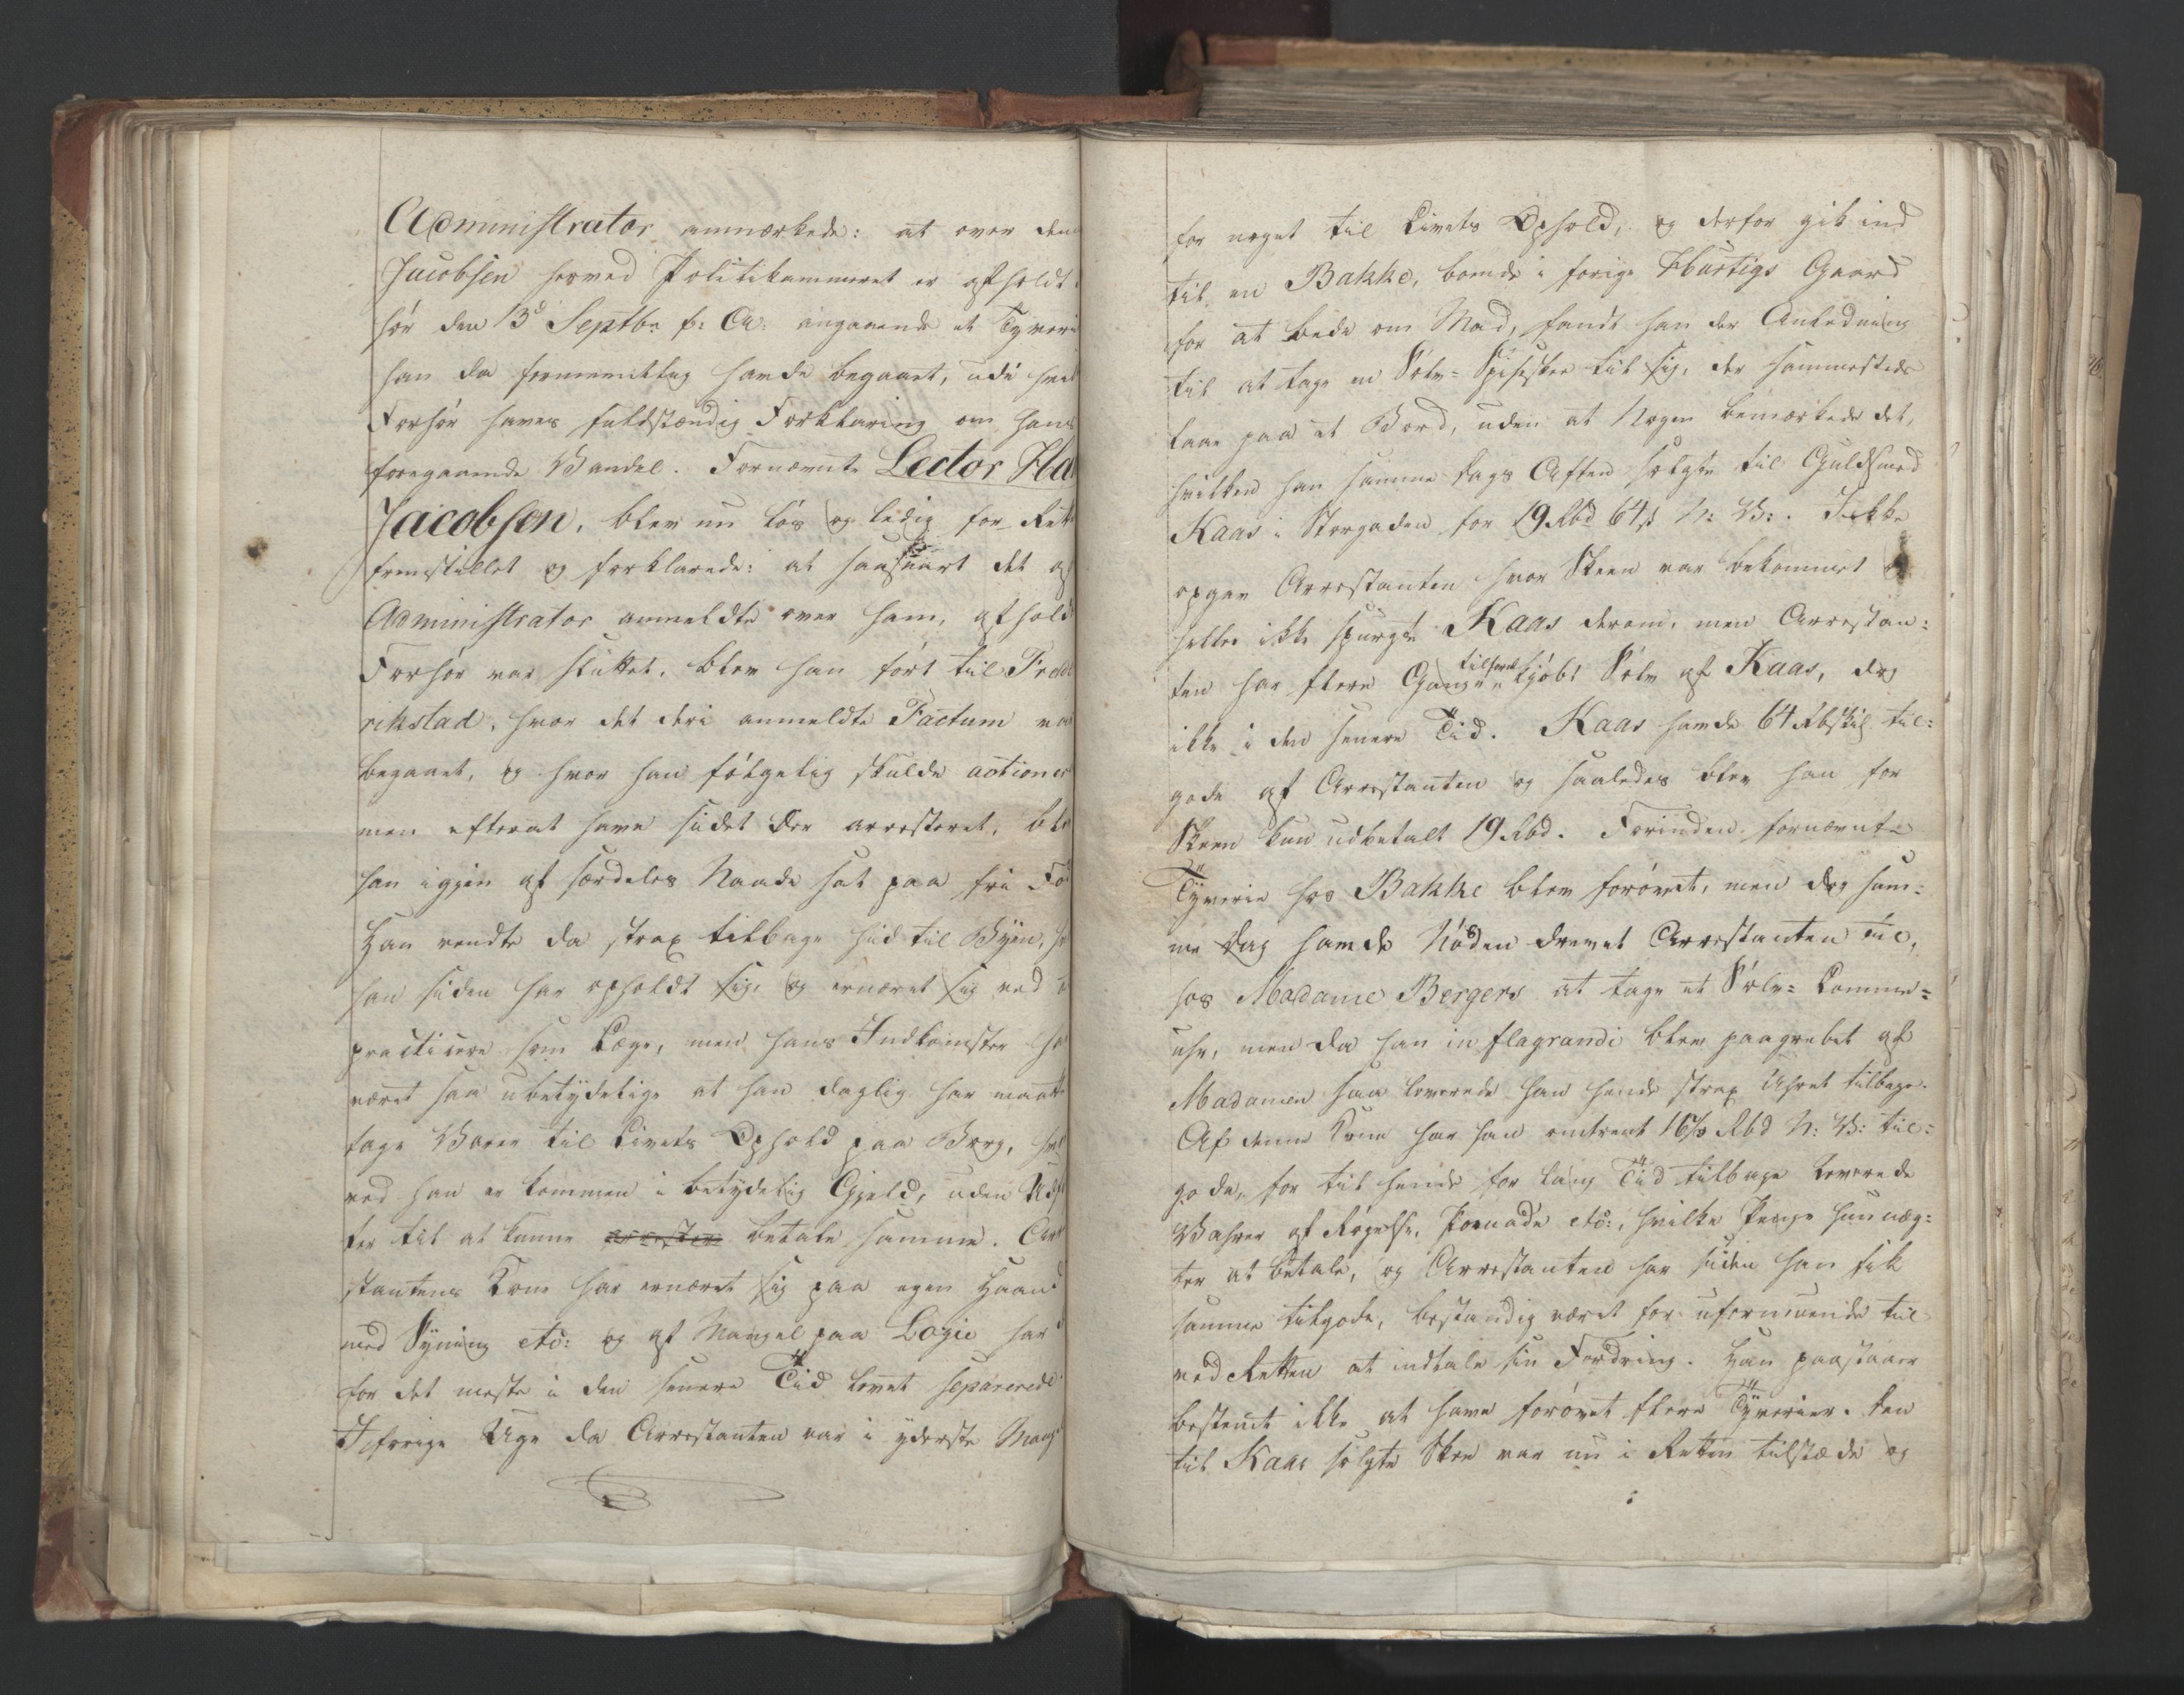 Administrator anmærkede: at over den
Jacobsen herved Politikammeret er afholdt
hör den 13d Septbr f: A: angaaende et Tyveri
han da formeentlig havde begaaet, udi hvil
Forhör haves fuldstændig Forklaring om hans
foregaaende Vandel. Fornævnte Lector Ha
Jacobsen, blev nu lös og ledig for Rett
fremstillet og forklarede: at saasnart det af
Administrator anmeldte over ham, afhold
Forhör var sluttet, blev han fört til Fred
rikstad, hvor det deri anmeldte Factum va
begaaet, og hvor han fölgelig skulde actioner
men efterat have sidet der arresteret, ble
han igjen af særdeles Naade sat paa fri Fod
Han vendte da strax tilbage hid til Byen, h
han siden har opholdt sig, og ernæret sig ved a
practicere som Læge, men hans Indkomster ha
været saa ubetydelige at han daglig har maatt
tage Varer til Livets Ophold paa Borg, hvor
ved han er kommen i betydelig Gjeld, uden Udsig
ter til at kunne betale samme. Arre
stantens Kone har ernæret sig paa egen Haand
med Syning etc: og af Mangel paa Logie har
for det meste i den senere Tid levet separerede
I forige Uge da Arrestanten var i yderste Mang
for noget til Livets Ophold, og derfor gik ind
til en Bakke, boende i forige Hurtigs Gaard
for at bede om Mad, fandt han der Anledning
til at tage en Sölv-Spiseskee til sig, der sammesteds
laae paa et Bord, uden at Nogen bemærkede det,
hvilken han samme Dags Aften solgte til Guldsmed
Kaas i Storgaden for 19 Rbd 64 s N: V:. Ikke
opgav Arrestanten hvor Skeen var bekommet
heller ikke spurgte Kaas derom, men Arrestan=
ten har flere Gange tilforn kjöbt Sölv af Kaas, dog
ikke i den senere Tid. Kaas havde 64 Rbskil til=
gode af Arrestanten og saaledes blev han for
Skeen kun udbetalt 19 Rbd. Forinden fornævnte
Tyverie hos Bakke blev forövet, men dog sam=
me Dag havde Nöden drevet Arrestanten til,
hos Madame Bergers at tage et Sölv= Lomme=
uhr, men da han in flagrandi blev paagrebet af
Madamen saa leverede han hende strax Uhret tilbage.
Af denne Kone har han omtrent 16/3 Rbd N: V: til=
gode, for til hende for lang Tid tilbage leverede
Vahrer af Rögelse, Pomade etc:, hvilke Penge hun næg=
ter at betale, og Arrestanten har siden han fik
samme tilgode, bestandig været for uformuende til
ved Retten at indtale sin Fordring. Han paastaaer
bestemt ikke at have forövet flere Tyverier. Den
til Kaas solgte Skee var nu i Retten tilstæde og